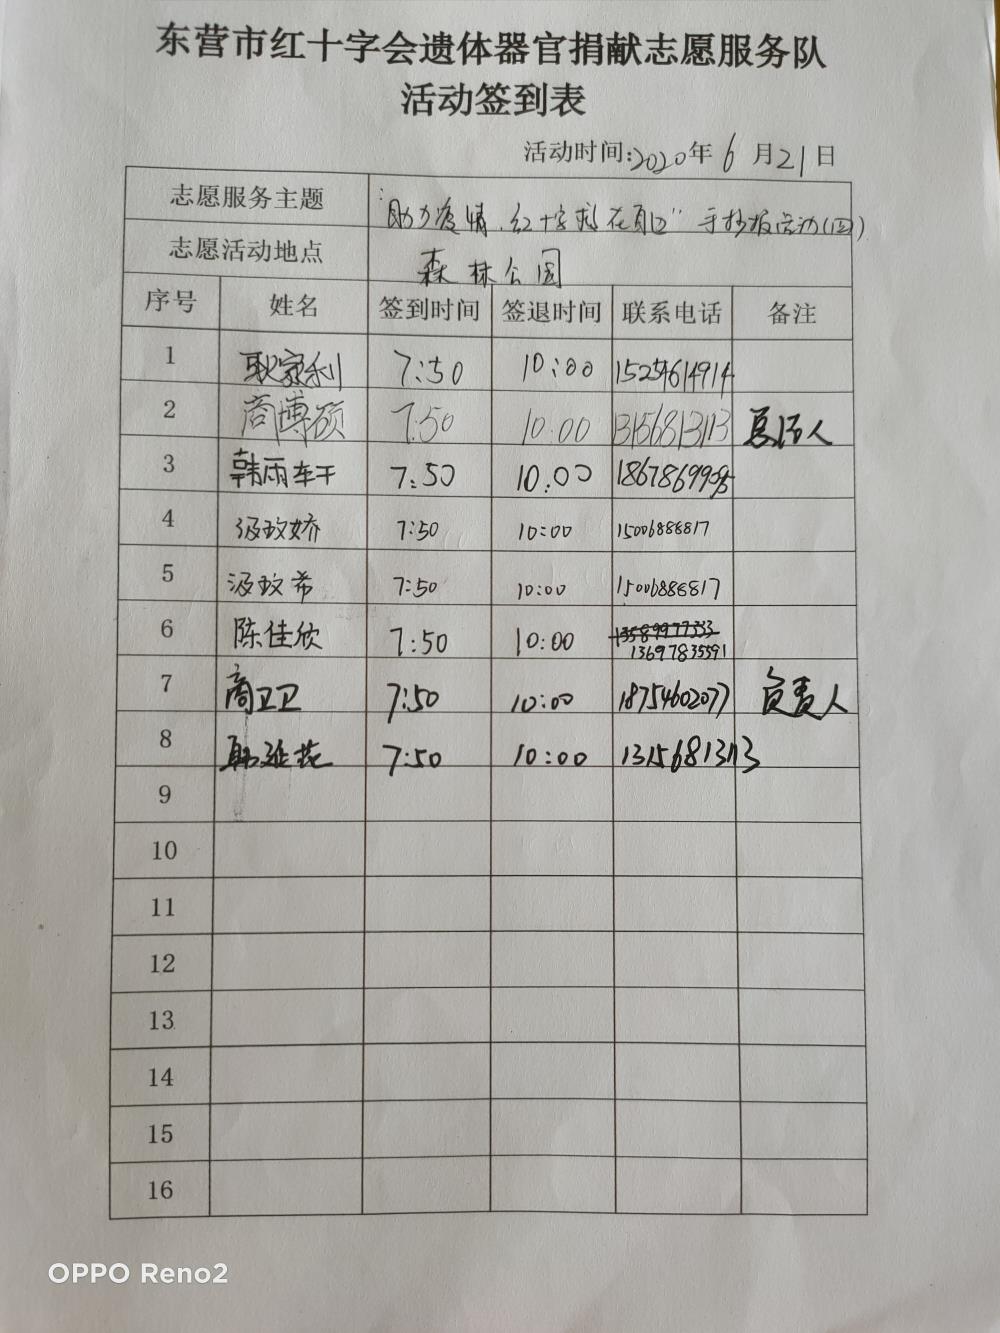 东营市红十字会遗体器官捐献志愿服务队
活动签到表
活动时间:2020年6月21日
志愿服务主题 "助力疫情,红十字 在身边"手抄报活动(四)
志愿活动地点 森林公园
序号 姓名 签到时间 签退时间 联系电话 备注
1 耿家利 7:50 10:00 15254614914
2 商博硕 7:50 10:00 13156813113
3 韩雨 7:50 10:00
4 汲玟娇 7:50 10:00 15006888817
5 汲玟希 7:50 10:00 15006888817
6 陈佳欣 7:50 10:00 13589977333
13697835591
7 商卫卫 7:50 10:00 18754602077 负责人
8 7:50 10:00 13156813113
9
10
11
12
13
14
15
16
OPPO Reno2